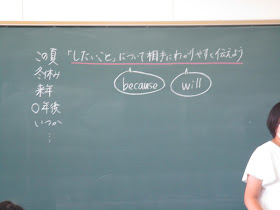 「したいこと」について相手にわかりやすく伝えよう
because
will
この夏
冬休み
来年
〇年後
いつか
⋮